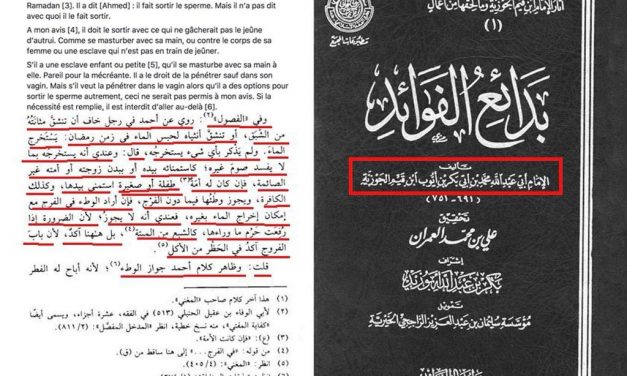 Ramadan [3]. Il a dit [Ahmed] : il fait sortir le sperme. Mais il n'a pas dit
avec quoi il le fait sortir.
A mon avis [4], il doit le sortir avec ce qui ne gâcherait pas le jeûne
d'autrui. Comme se masturber avec sa main, ou contre le corps de sa
femme ou une esclave qui n'est pas en train de jeûner.
S'il a une esclave enfant ou petite [5], qu'il se masturbe avec sa main à
elle. Pareil pour la mécréante. Il a le droit de la pénétrer sauf dans son
vagin. Mais s'il veut la pénétrer dans le vagin alors qu'il a des options pour
sortir le sperme autrement, ceci ne serait pas permis à mon avis. Si la
nécessité est remplie, il est interdit d'aller au-delà [6].
وفي «الفصول»(٢): روي عن أحمد في رجل خاف أن تنشقَّ مثانتُه
من الشَّبَق، أو تنشقَّ أنثياه لحبس الماء في زمن رمضان: يَسْتَخْرِجُ
الماءَ. ولم يذكر بأي شيء يستخرجُه، قال: وعندي أنه يستخرجُه بما
لا يفسد صومَ غيره؛ كاستمنائه بيده أو ببدن زوجته أو أمته غير
الصائمة، فإن كان له أَمَةٌ(٣) طفلة أو صغيرة استمنى بيدها، وكذلك
الكافرة، ويجوز وطْئُها فيما دون الفَرْج، فإن أراد الوطء في الفرج مع
إمكان إخراج الماء بغيره، فعندي أنه لا يجوزُ؛ لأن الضرورة إذا
رُفعَت حَرُم ما وراءَها، كالشِّبَع من الميتة(٤)، بل ههنا آكدُ، لأن بابَ
الفروج آكدُ في الحَظْر من الأكل(٥).
قلت: وظاهر كلام أحمد جواز الوطء(٦)؛ لأنه أباح له الفطر
(١) هذا آخر كلام صاحب «المغني».
(٢) لأبي الوفاء بن عقيل الحنبلي (٥١٣) في الفقه، عشرة أجزاء، ويسمى أيضًا
«كفاية المفتي»، منه نسخ خطية، انظر: «المدخل المفصَّل»: (٨١١/٢).
(٣) (ع): «فإن كانت الأمة».
(٤) من قوله: «في الفرج...» إلى هنا ساقط من (ق).
(٥) انظر: «المغني»: (٤٠٥/٤).
آثار الإمام ابن قيم الجوزية وما لحقها من أعمال
(١)
مطبوعات المجمع
بدائع الفوائد
تأليف
الإمام أبي عبد الله محمد بن أبي بكر بن أيوب ابن قيم الجوزية
(٦٩١ - ٧٥١)
تحقيق
علي بن محمد العمران
إشراف
بكر بن عبد الله أبو زيد
تمويل
مؤسسة سليمان بن عبد العزيز الراجحي الخيرية